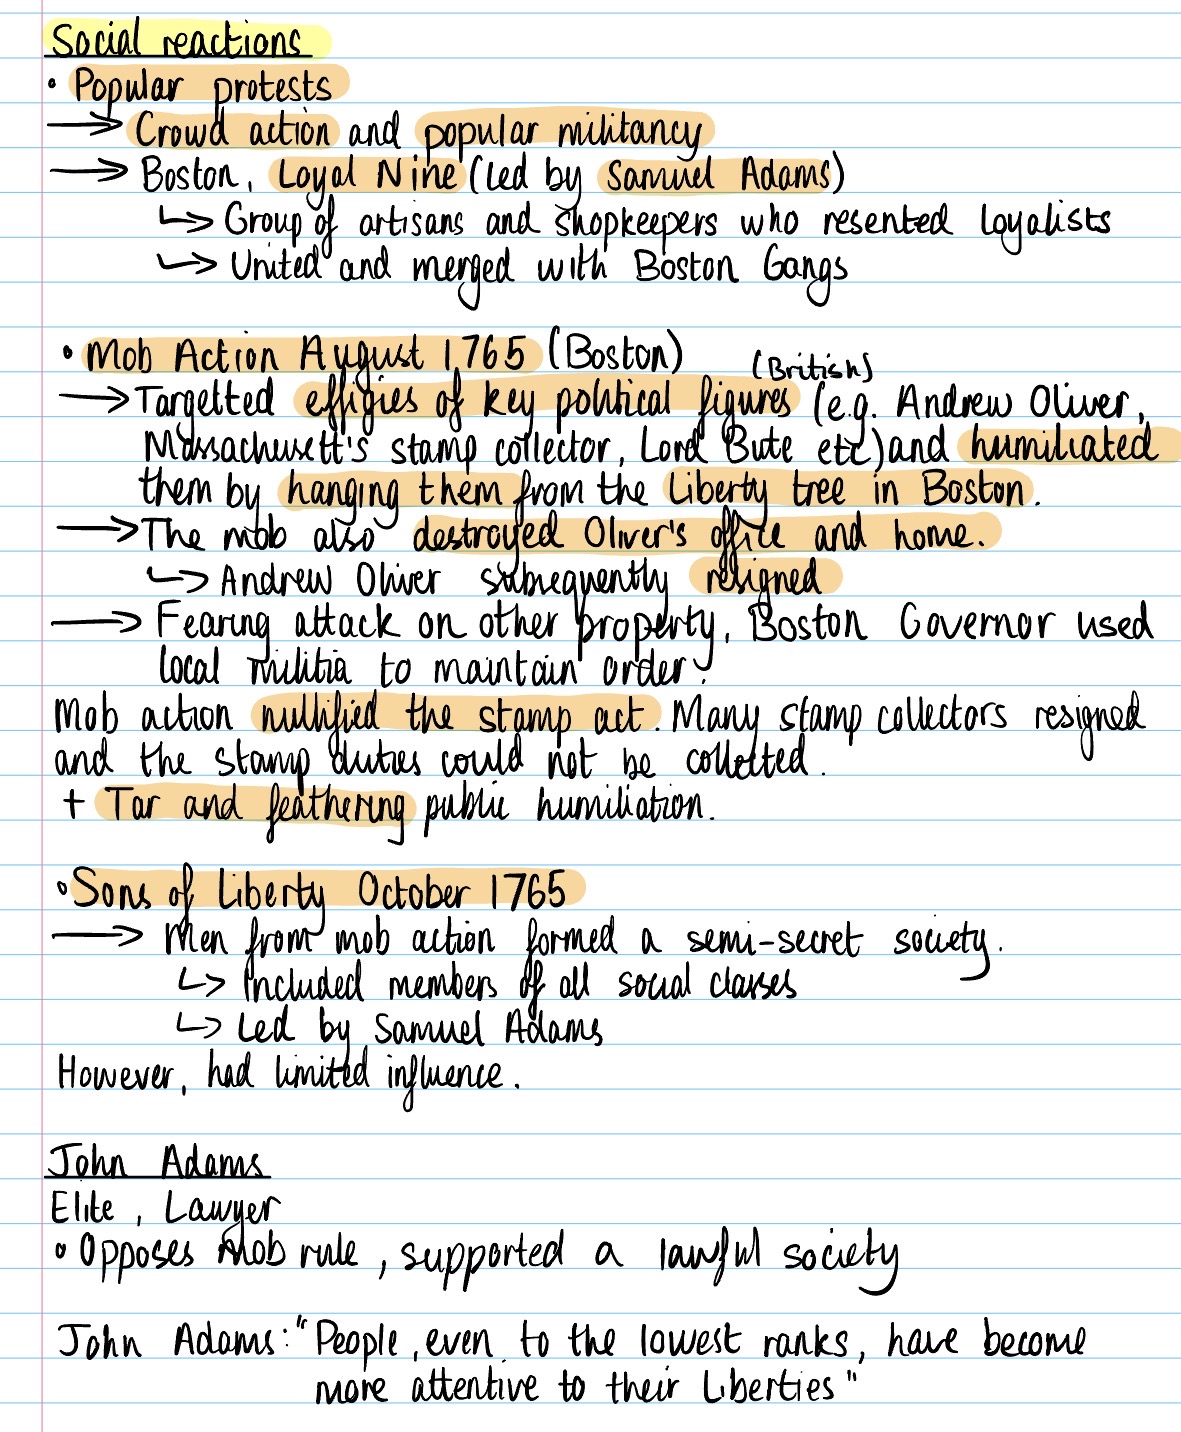 Social reactions
• Popular protests
→ Crowd action and popular militancy
→ Boston, Loyal Nine (led by Samuel Adams)
↳ Group of artisans and shopkeepers who resented loyalists
↳ United and merged with Boston Gangs
• Mob Action August 1765 (Boston)
(British)
→ Targetted effigies of key political figures (e.g. Andrew Oliver,
Massachusett's stamp collector, Lord Bute etc) and humiliated
them by hanging them from the Liberty tree in Boston.
→ The mob also destroyed Oliver's office and home.
↳ Andrew Oliver subsequently resigned
→ Fearing attack on other property, Boston Governor used
local militia to maintain order.
Mob action nullified the stamp act. Many stamp collectors resigned
and the stamp duties could not be collected.
+ Tar and feathering public humiliation.
• Sons of Liberty October 1765
→ Men from mob action formed a semi-secret society.
↳ Included members of all social classes
↳ Led by Samuel Adams
However, had limited influence.
John Adams
Elite, Lawyer
• Opposes Mob rule, supported a lawful society
John Adams: "People, even to the lowest ranks, have become
more attentive to their Liberties"